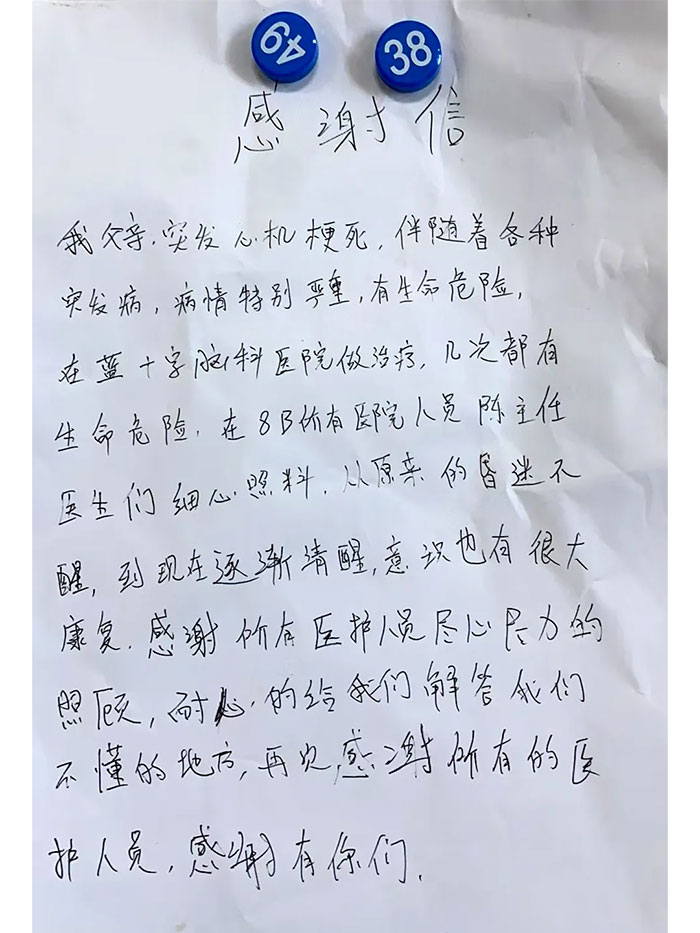 64 38
感谢信
我父亲.突发心机梗死，伴随着各种
突发病，病情特别严重，有生命危险，
在蓝十字脑科医院做治疗，几次都有
生命危险，在8B所有医院人员陈主任
医生们细心照料，从原来的昏迷不
醒，到现在逐渐清醒，意识也有很大
康复.感谢所有医护人员尽心尽力的
照顾，耐心的给我们解答我们
不懂的地方，再次感谢所有的医
护人员，感谢有你们.